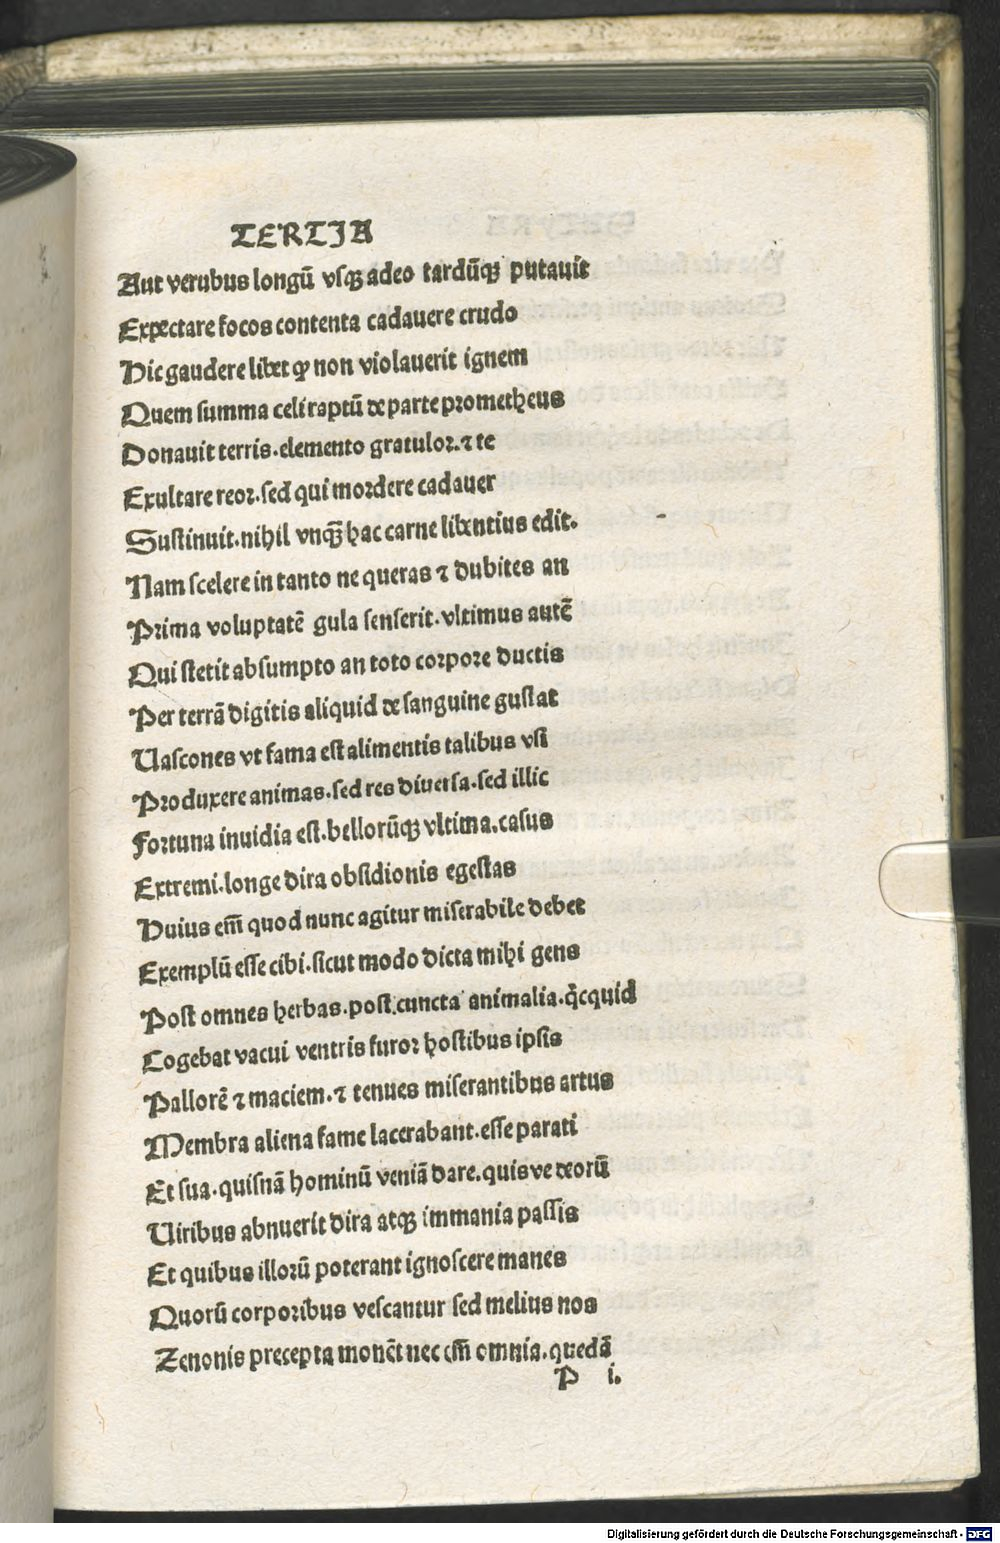 TERTIA
Aut verubus longū vsqꝫ adeo tardūqꝫ putauit
Expectare focos contenta cadauere crudo
Hic gaudere libet ꝙ non violauerit ignem
Quem summa celi raptū de parte prometheus
Donauit terris.elemento gratulor.⁊ te
Exultare reor.sed qui mordere cadauer
Sustinuit.nihil vnqꝫ̄ hac carne libentius edit.
Nam scelere in tanto ne queras ⁊ dubites an
Prima voluptatē gula senserit.vltimus autē
Qui stetit absumpto an toto corpore ductis
Per terrā digitis aliquid de sanguine gustat
Uascones vt fama est alimentis talibus vsi
Produxere animas.sed res diuersa.sed illic
Fortuna inuidia est.bellorūqꝫ vltima.casus
Extremi.longe dira obsidionis egestas
Huius em̄ quod nunc agitur miserabile debet
Exemplū esse cibi.sicut modo dicta mihi gens
Post omnes herbas.post cuncta animalia.qͥcquid
Cogebat vacui ventris furor hostibus ipsis
Pallorē ⁊ maciem.⁊ tenues miserantibus artus
Membra aliena fame lacerabant.esse parati
Et sua.quisnā hominū veniā dare.quisve deorū
Uiribus abnuerit dira atqꝫ immania passis
Et quibus illorū poterant ignoscere manes
Quorū corporibus vescantur sed melius nos
Zenonis precepta monēt nec em̄ omnia.quedā
P i.
Digitalisierung gefördert durch die Deutsche Forschungsgemeinschaft - DFG